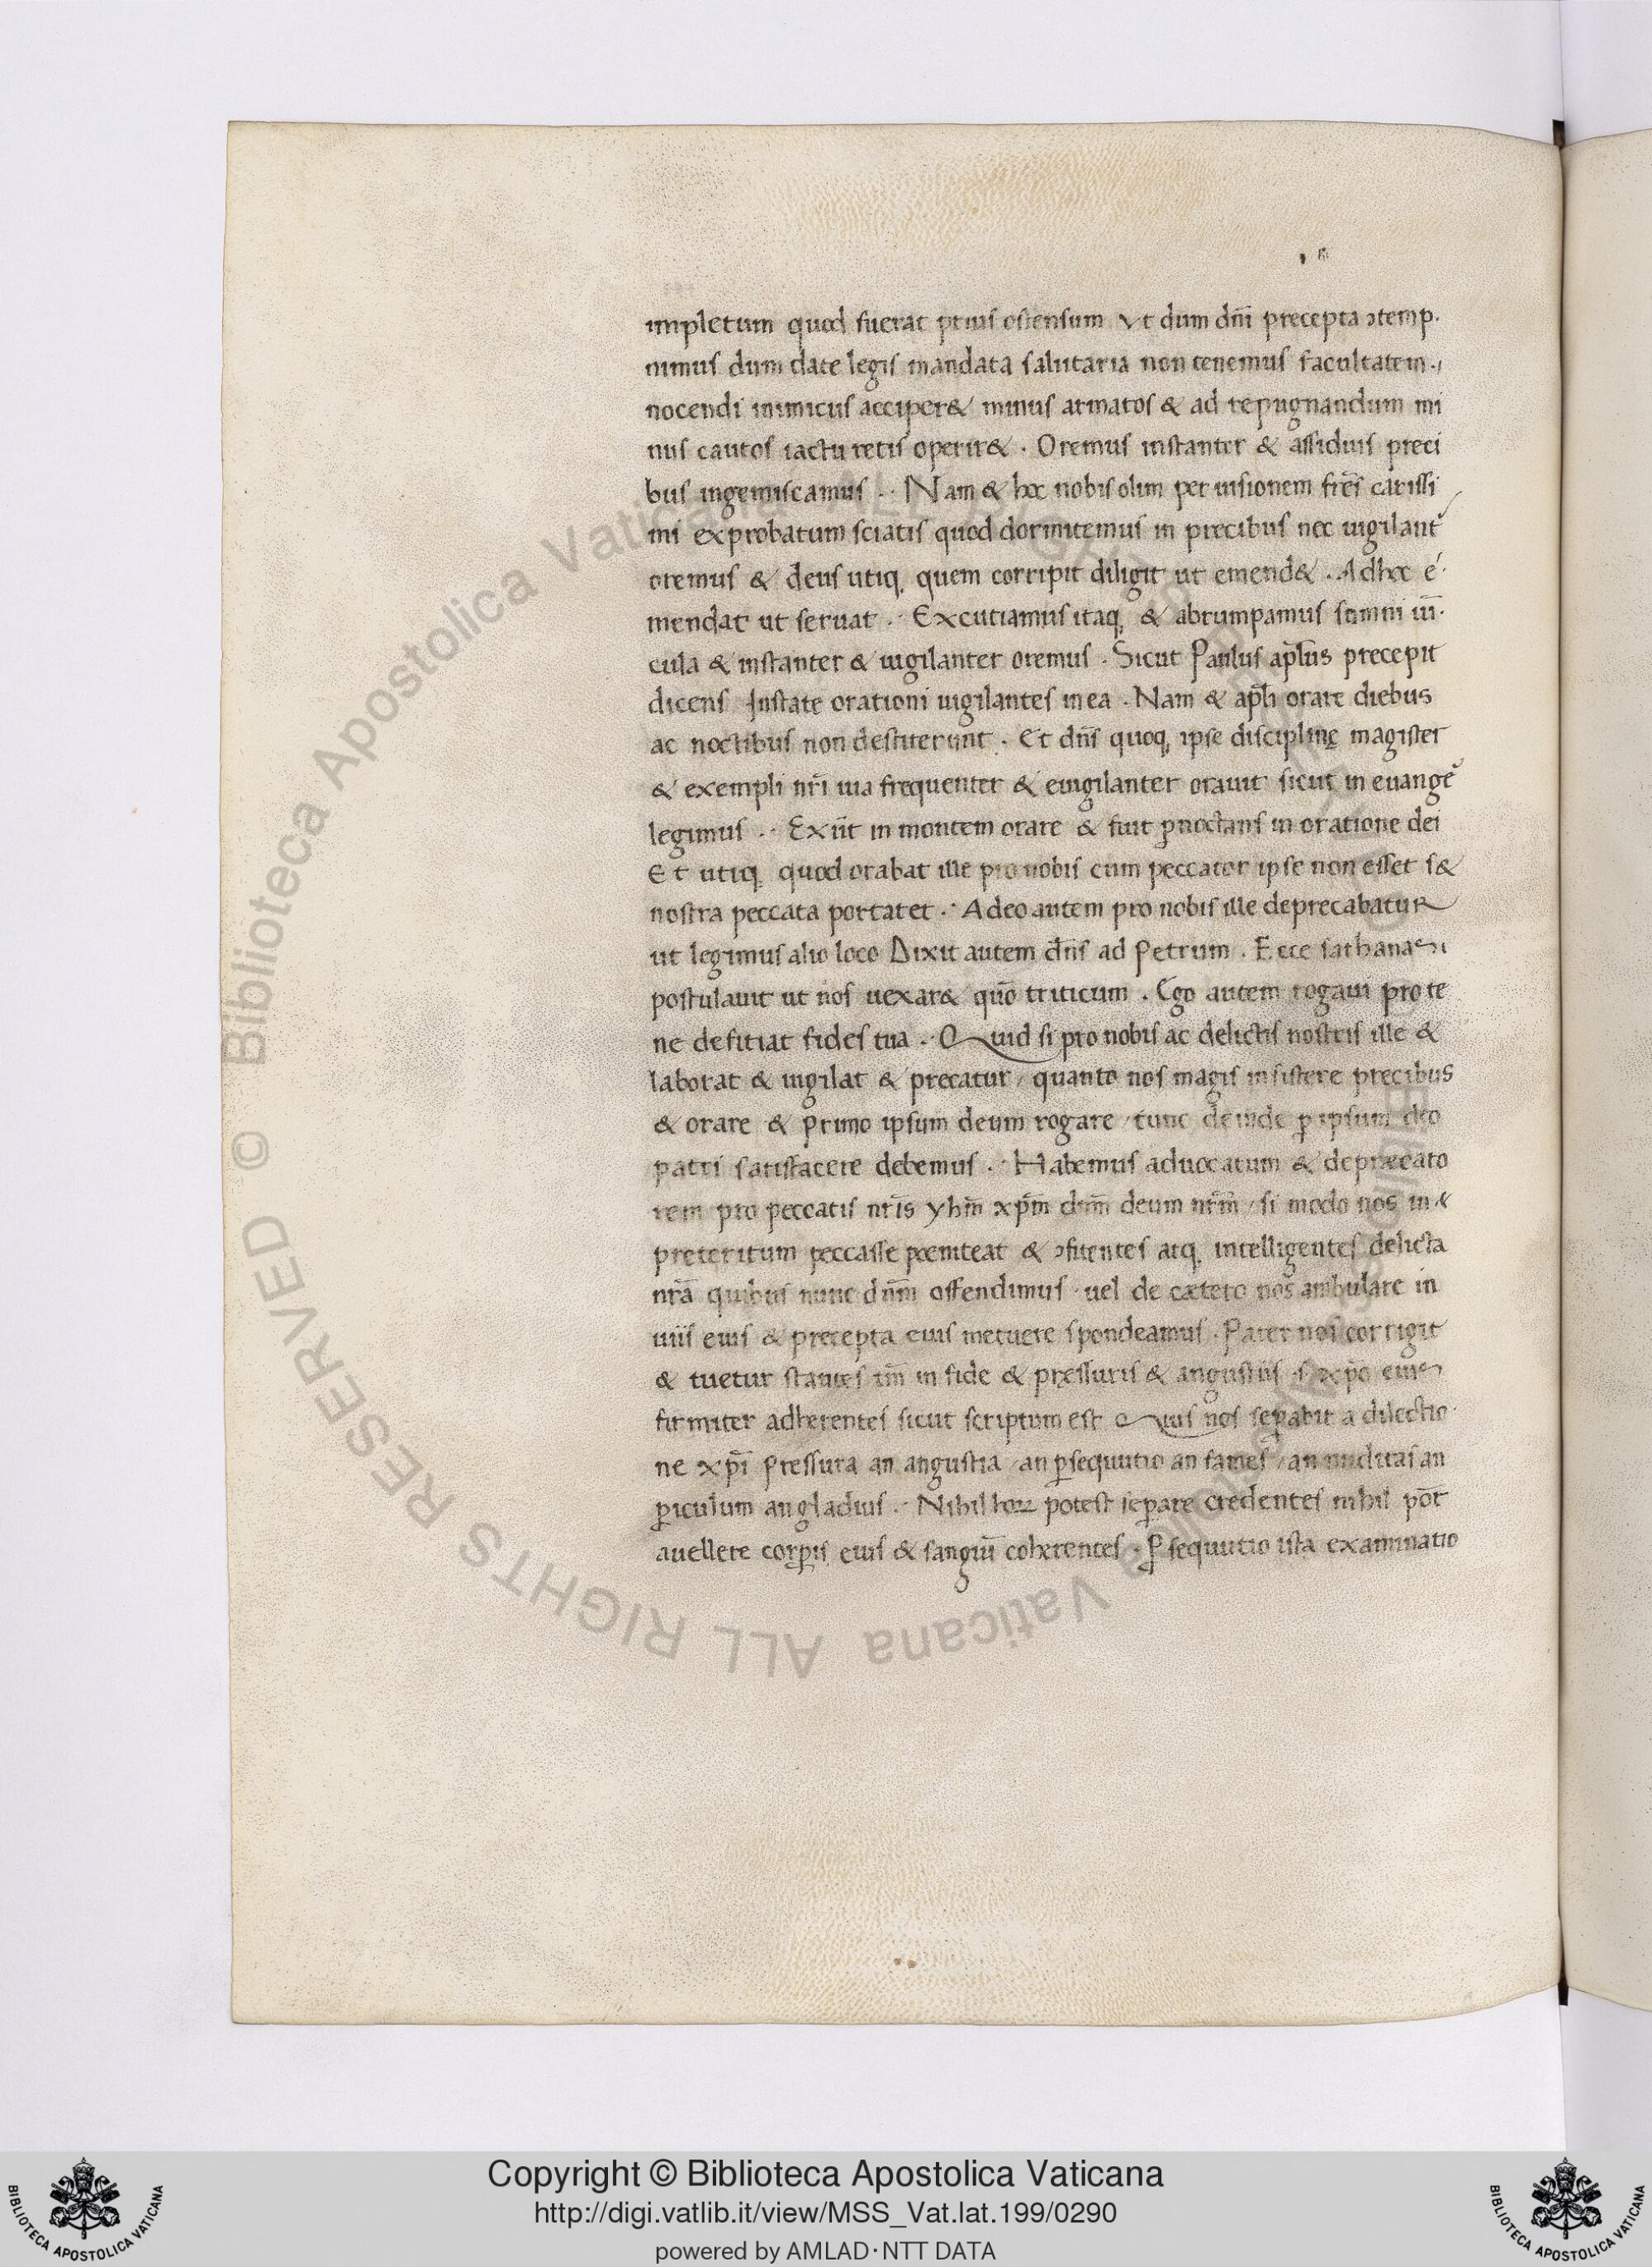 impletum quod fuerat prius ostensum Vt dum dn̄i precepta ɔtemp.
nimus dum date legis mandata salutaria non tenemus facultatem.
nocendi inimicus acciper& minus armatos & ad repugnandum mi
nus cautos iactu retis operir& . Oremus instanter & assiduis preci
bus ingemiscamus .. Nam & hoc nobis olim per uisionem fr̄es carissi
mi exprobatum sciatis quod dormitemus in precibus nec uigilant᷑
oremus & deus utiq, quem corripit diligit ut emend& . Adhoc e᷑.
mendat ut seruat .. Excutiamus itaq, & abrumpamus somni uī.
cula & instanter & uigilanter oremus . Sicut Paulus ap̄lus precepit
dicens Instate orationi uigilantes in ea . Nam & ap̄li orare diebus
ac noctibus non destiterunt . Et dn̄s quoq, ipse disciplinę magister
& exempli nr̄i uia frequenter & euigilanter orauit sicut in euange᷑
legimus .. Exiit in montem orare & fuit ꝑnoctans in oratione dei
Et utiq, quod orabat ille pro nobis cum peccator ipse non esset s&
nostra peccata portaret .. Adeo autem pro nobis ille deprecabatur
ut legimus alio loco Dixit autem dn̄s ad Petrum . Ecce sathanas
postulauit ut nos uexar& quō triticum . Ego autem rogaui pro te
ne defitiat fides tua .. Quid si pro nobis ac delictis nostris ille &
laborat & uigilat & precatur / quanto nos magis insistere precibus
& orare & primo ipsum deum rogare / tunc deinde ꝑ ipsum deo
patri satisfacere debemus .. Habemus aduocatum & depræcato
rem pro peccatis nr̄is yhm̄ xp̄m dnm̄ deum nr̄m / si modo nos in
preteritum peccasse poeniteat & ɔfitentes atq, intelligentes delicta
nr̄a quibus nunc dnm̄ offendimus uel de cætero nos ambulare in
uiis eius & precepta eius metuere spondeamus . Pater nos corrigit
& tuetur stantes tm̄ in fide & pręssuris & angustiis xp̄o eius
firmiter adherentes sicut scriptum est Quis nos seꝑabit a dilectio
ne xp̄i Pressura an angustia / an ꝑsequutio an fames / an nuditas an
ꝑiculum an gladius .. Nihil horꝝ potest seꝑare credentes nihil pōt
auellere corꝑis eius & sanguī coherentes . Ꝑsequutio ista examinatio
Copyright © Biblioteca Apostolica Vaticana
http://digi.vatlib.it/view/MSS_Vat.lat.199/0290
powered by AMLAD·NTT DATA